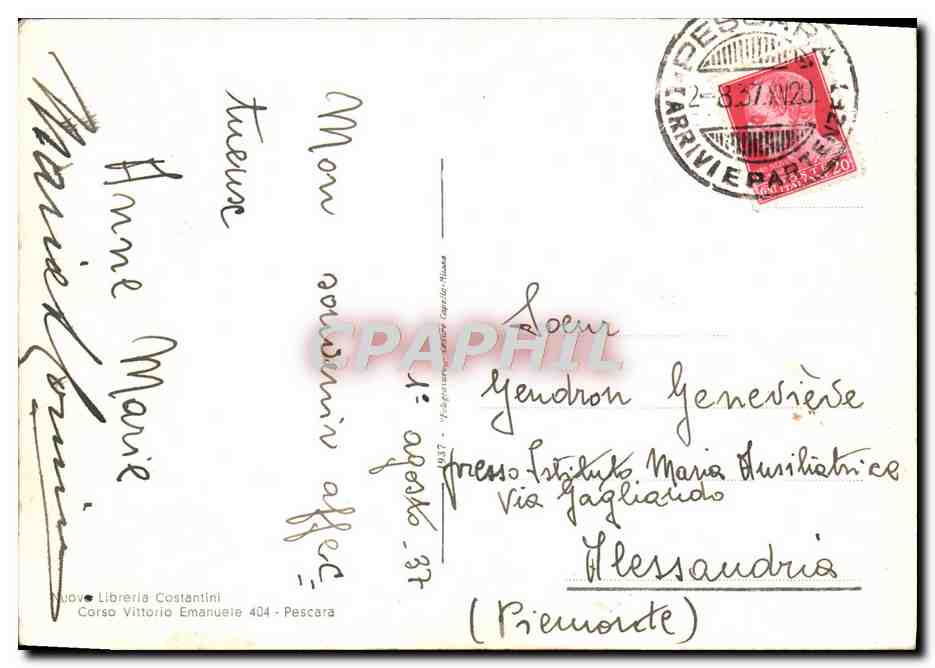 1° agosto - 37
Mon souvenir affec=
tueux
Anne Marie
PESCARA
2-8.37.XV 20
ARRIVI E PARTENZE
20
Soeur
Gendron Geneviève
presso Istituto Maria Ausiliatrice
Via Gagliaudo
Alessandria
(Piemonte)
1937 -
Nuova Libreria Costantini
Corso Vittorio Emanuele 404 - Pescara
CPAPHIL